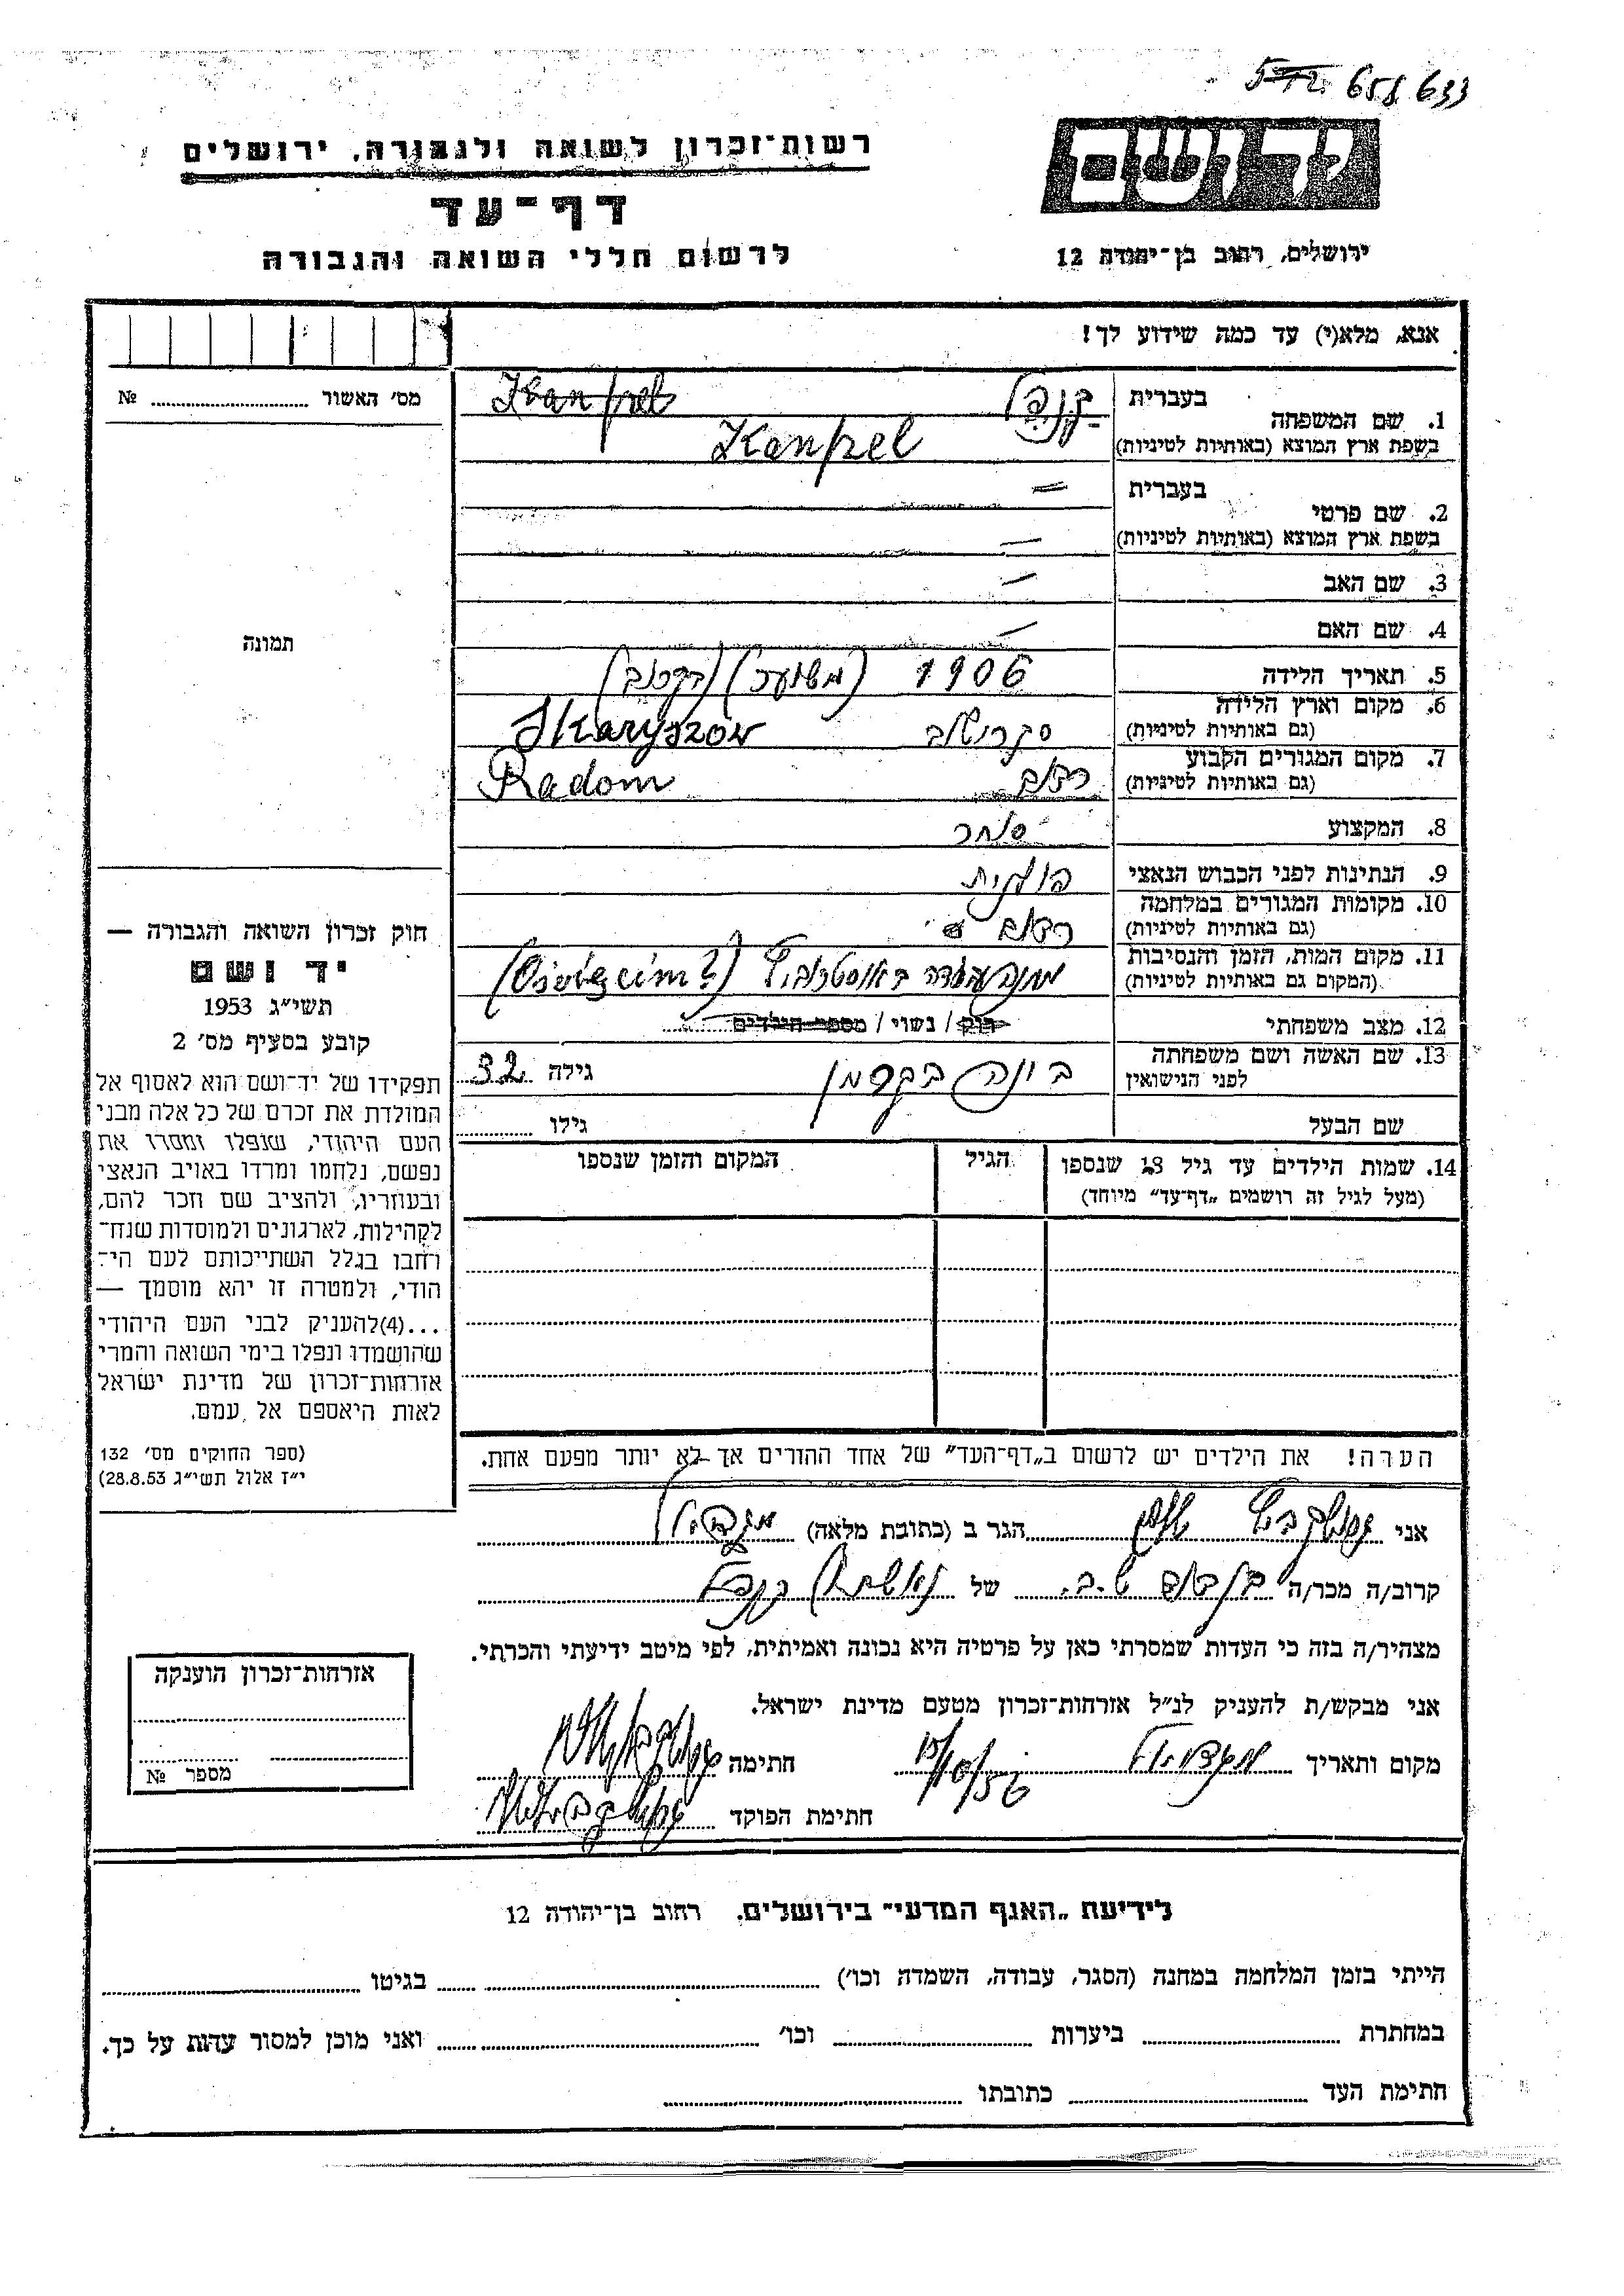 658 633
רשות־זכרון לשואה ולגבורה, ירושלים
יד ושם
דף־עד
לרשום חללי השואה והגבורה
ירושלים, רחוב בן־יהודה 12
אנא, מלא(י) עד כמה שידוע לך!
מס׳ האשור № ...
1. שם המשפחה בעברית קנפל Kanpel
בשפת ארץ המוצא (באותיות לטיניות) Kanpel
2. שם פרטי בעברית =
בשפת ארץ המוצא (באותיות לטיניות) —
3. שם האב —
4. שם האם —
תמונה
5. תאריך הלידה 1906 (משוער)
6. מקום וארץ הלידה (גם באותיות לטיניות) סקרישוב Skaryszów
7. מקום המגורים הקבוע (גם באותיות לטיניות) רדום Radom
8. המקצוע סוחר
9. הנתינות לפני הכבוש הנאצי פולנית
10. מקומות המגורים במלחמה (גם באותיות לטיניות) רדום
11. מקום המות, הזמן והנסיבות (המקום גם באותיות לטיניות) (Oświęcim?)
12. מצב משפחתי רוק / נשוי / מספר הילדים
13. שם האשה ושם משפחתה לפני הנישואין גילה 32
שם הבעל גילו
14. שמות הילדים עד גיל 18 שנספו (מעל לגיל זה רושמים „דף־עד״ מיוחד) הגיל המקום והזמן שנספו
חוק זכרון השואה והגבורה —
יד ושם
תשי״ג 1953
קובע בסעיף מס׳ 2
תפקידו של יד־ושם הוא לאסוף אל
המולדת את זכרם של כל אלה מבני
העם היהודי, שנפלו ומסרו את
נפשם, נלחמו ומרדו באויב הנאצי
ובעוזריו, ולהציב שם וזכר להם,
לקהילות, לארגונים ולמוסדות שנח־
רחבו בגלל השתייכותם לעם הי־
הודי, ולמטרה זו יהא מוסמך —
...(4) להעניק לבני העם היהודי
שהושמדו ונפלו בימי השואה והמרי
אזרחות־זכרון של מדינת ישראל
לאות היאספם אל עמם.
(ספר החוקים מס׳ 132
י״ז אלול תשי״ג 28.8.53)
הערה! את הילדים יש לרשום ב„דף־העד״ של אחד ההורים אך לא יותר מפעם אחת.
אני הגר ב (כתובת מלאה) מגדיאל
קרוב/ה מכר/ה של קנפל
מצהיר/ה בזה כי העדות שמסרתי כאן על פרטיה היא נכונה ואמיתית, לפי מיטב ידיעתי והכרתי.
אני מבקש/ת להעניק לנ״ל אזרחות־זכרון מטעם מדינת ישראל.
מקום ותאריך מגדיאל חתימה
חתימת הפוקד
אזרחות־זכרון הוענקה
מספר №
לידיעת „האגף המדעי״ בירושלים, רחוב בן־יהודה 12
הייתי בזמן המלחמה במחנה (הסגר, עבודה, השמדה וכו׳) בגיטו
במחתרת ביערות וכו׳ ואני מוכן למסור עדות על כך.
חתימת העד כתובתו